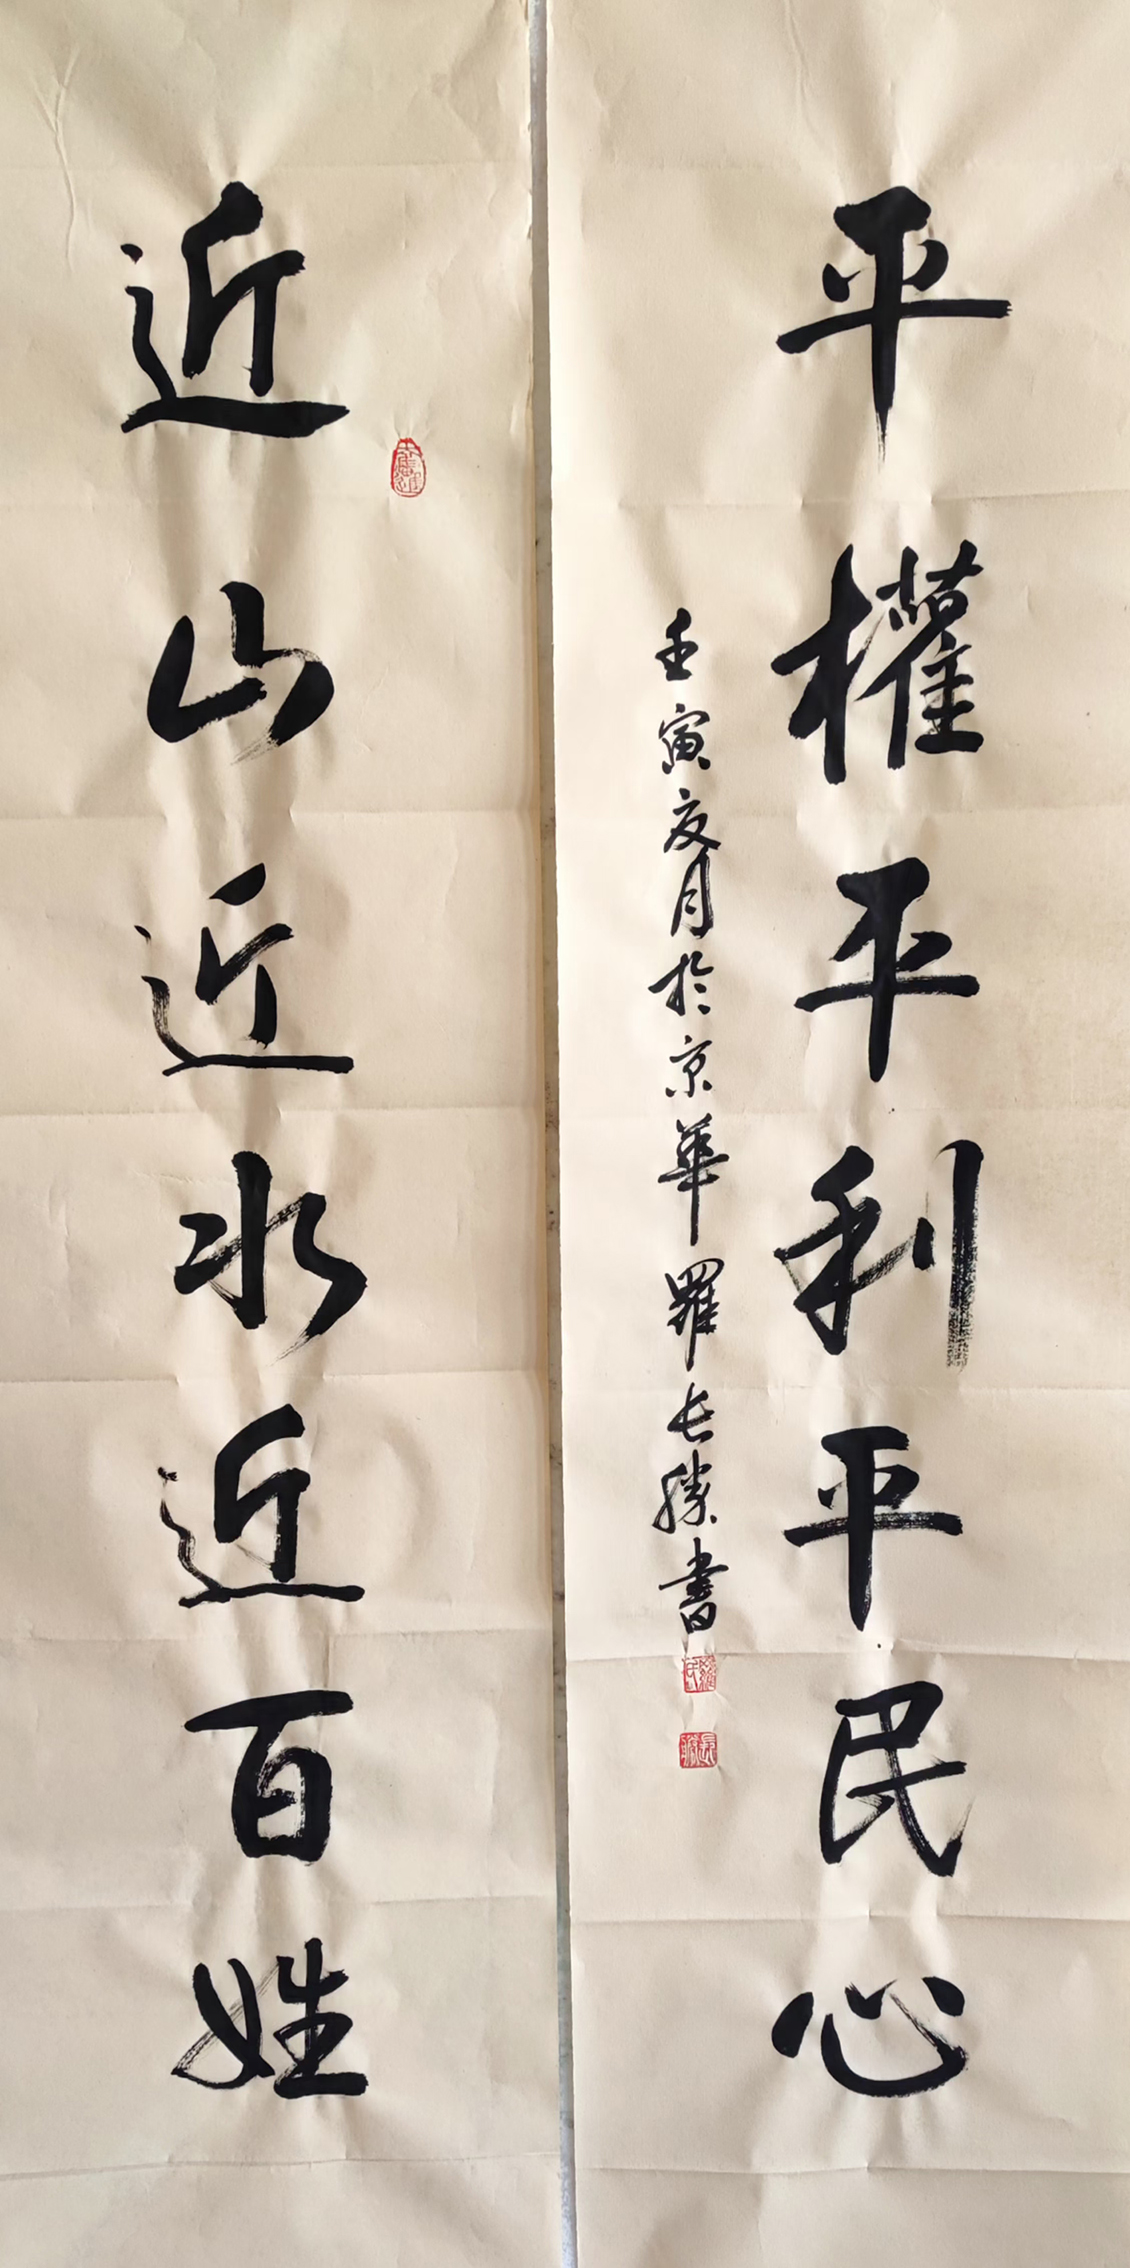 平權平利平民心
壬寅夏月於京華羅長勝書
羅氏
長勝
近山近水近百姓